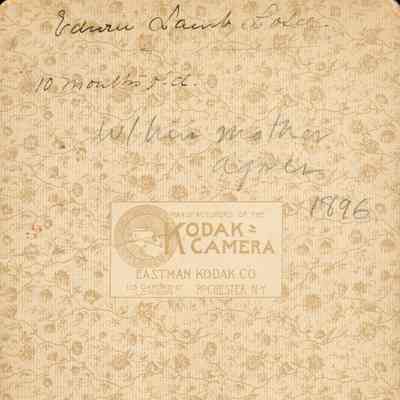 Edwin Lamb
10 months old.
With mother
agnes
1896
MANUFACTURERS OF THE
KODAK
CAMERA
EASTMAN KODAK CO
ROCHESTER N.Y.